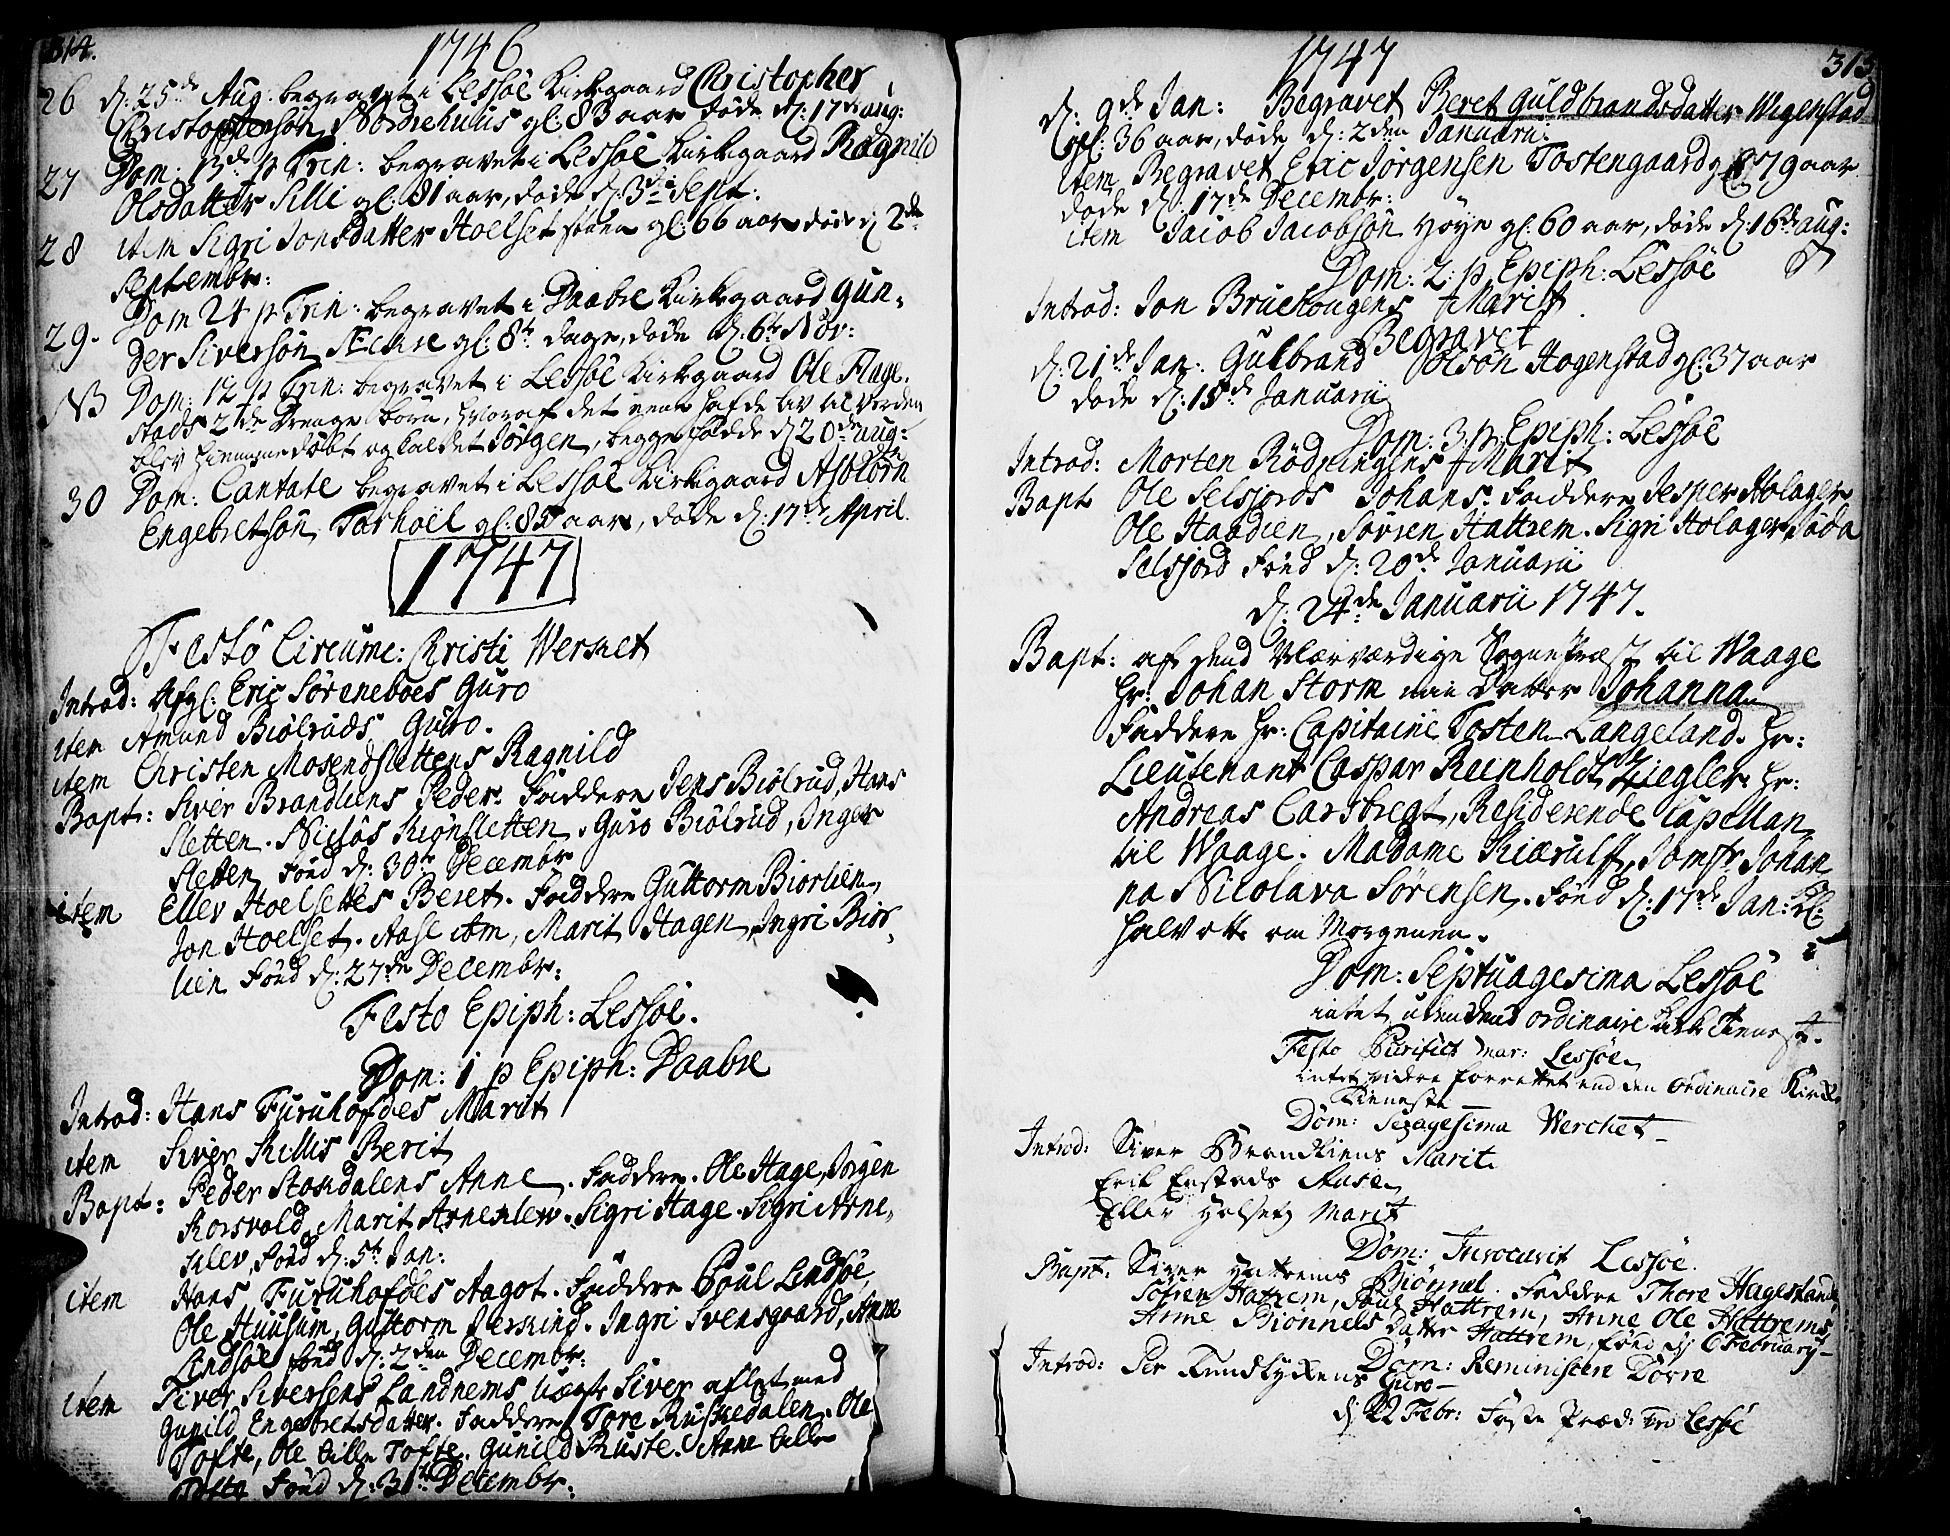 314.
1746
26 d: 25de Aug: begravet i Lessøe Kirkegaard Christopher
Christophersøn Nordrehuus gl: 83 aar døde d: 17de aug:
27 Dom: 13de p Trin: begravet i Lessøe Kirkegaard Ragnild
Olsdatter Silli gl: 81 aar, døde d: 3de Sept:
28 item Sigri Jonsdatter Hoelset gl: 66 aar døde d 2de
Septembr:
29. Dom 24 p Trin: begravet i Daabre Kirkegaard Gun,
der Siversøn gl: 8te dage, døde d: 6te Nov:
NB Dom: 12 p Trin: begravet i Lessøe Kirkegaard Ole Flage,
stads 2de Drenge børn, hvoraf det eene hafde liv til verden
blev hiemmedøbt og kaldet Jørgen, begge fødde d 20de aug:
30 Dom: Cantate begravet i Lessøe Kirkegaard Asbiørn
Engebretsøn Torhoel gl: 85 aar, døde d: 17de April
1747
Festo Circumc: Christi Werket
Introd: Afgl: Eric Søreneboes Guro
item Amund Biølruds Guro.
item Christen Mosendslettens Ragnild
Bapt: Siver Brandliens Peder. Faddere Jens Biølrud, Hans
Sletten. Niclos Kiønsletten. Guro Biølrud, Inger
Sletten fød d: 30te Decembr
item Ellev Hoelsettes Beret. Faddere Guttorm Biorlien,
Jon Hoelset. Aase item, Marit Hagen, Ingri Bior,
lien fød d: 27de Decembr:
Festo Epiph: Lessøe.
Dom: 1 p Epiph: Daabre
Introd: Hans Furuhofdes Marit
item Siver Killis Berit
Bapt: Peder Stordalens Anne. Faddere. Ole Hage, Jørgen
Korsvold, Marit Arneklev. Sigri Hage. Sigri Arne,
klev, fød d: 5te Jan:
item Hans Furuhofdes Aagot. Faddere Poul Lindsøe,
Ole Huusum, Guttorm . Ingri Svensgaard, Anne
Lindsøe fød d: 2den Decembr:
item Siver Siversens Landnems uægte Siver aflet med
Gunild Engebretsdatter. Faddere Tore Ruskedalen. Ole
Tofte, Ole Lille Tofte. Gunild Kruste. Anne Lille
Tofte, fød d: 31te Decembr:
1747
315
d: 9de Jan: Begravet Beret Guldbrandsdatter Wigenstad
gl: 36 aar, døde d: 2den Januarii
item Begravet Eric Jørgensen Tostengaard gl: 79 aar
døde d: 17de Decembr:
item Jacob Jacobsøn Høye gl: 60 aar, døde d: 16de aug:
Dom: 2: p Epiph: Lessøe
Introd: Jon Bruehougens Marit
Begravet
d: 21de Jan: Gulbrand Olsøn Hogenstad gl: 37 aar
døde d: 15de Januarii
Dom: 3: p: Epiph: Lessøe
Introd: Morten Rødningens Marit
Bapt Ole Selsjords Johans. Faddere Jesper Holager
Ole Haadien, Sørren Hattrem. Sigri Holager,
Selsjord fød d: 20de Januarii
d: 24de Januarii 1747.
Bapt: af hend Velærværdige Sogne Præst til Waage
Hr: Johan Storm min Datter Johanna
Faddere Hr: Capitaine Tosten Langeland. Hr:
Lieutenant Caspar Reinholdt Ziegler. Hr:
Andreas Carsbregt, Residerende Capellan
til Waage. Madame Kiærulf, Jomfr Johan
na Nicolava Sørensen. Fød d: 17de Jan: Kl:
halv otte om Morgenen.
Dom: Septuagesima Lessøe
intet uden den ordinaire Kirke tieneste.
Festo Purificat Mar: Lessøe
intet videre forrettet end den ordinaire Kirke
tieneste
Dom: Sexagesima Werchet
Introd: Siver Brandliens Marit
Erik Enstads Anse
Ellev Holset Marit
Dom: Invocavit Lessøe.
Bapt: Siver Hattrems Biønnel. Faddere Thore Hagestande
Søfren Hattrem, Poul Hattrem, Anne Ole Hattrems
Anne Biønnels datter Hattrem, fød d 6 February
Dom: Reminiscere Dovre
Introd: Per Guro
d 22 Febr: Faste Præd: ved Lessøe